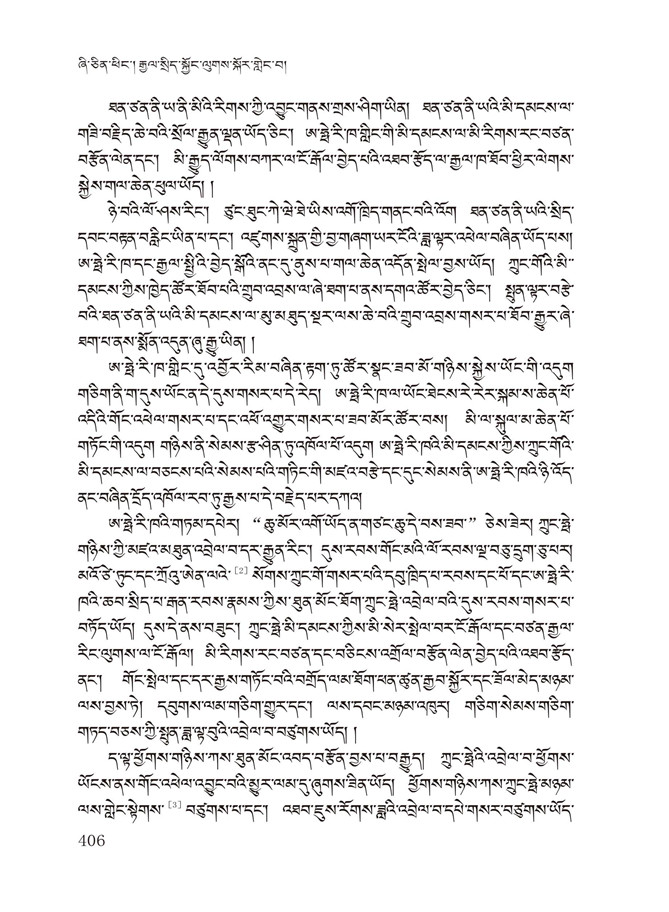 ཞི་ཅིན་ཕིང་། རྒྱལ་སྲིད་སྐྱོང་ལུགས་སྐོར་གླེང་བ།
ཐན་ཙན་ནི་ཡ་ནི་མིའི་རིགས་ཀྱི་འབྱུང་གནས་གྲས་ཤིག་ཡིན། ཐན་ཙན་ནི་ཡའི་མི་དམངས་ལ་
གཟི་བརྗིད་ཆེ་བའི་སྲོལ་རྒྱུན་ལྡན་ཡོད་ཅིང་། ཨ་ཧྥེ་རི་ཁ་གླིང་གི་མི་དམངས་ལ་མི་རིགས་རང་བཙན་
བརྩོན་ལེན་དང་། མི་རྒྱུད་ལོགས་བཀར་ལ་ངོ་རྒོལ་བྱེད་པའི་འཐབ་རྩོད་ལ་རྒྱལ་ཁ་ཐོབ་ཕྱིར་ལེགས་
སྐྱེས་གལ་ཆེན་ཕུལ་ཡོད། །
ཉེ་བའི་ལོ་ཤས་རིང་། ཙུང་ཐུང་ཀེ་ཝེ་ཐེ་ཡིས་འགོ་ཁྲིད་གནང་བའི་འོག ཐན་ཙན་ནི་ཡའི་སྲིད་
དབང་བརྟན་བརླིང་ཡིན་པ་དང་། འཛུགས་སྐྲུན་གྱི་བྱ་གཞག་ཡར་ངོའི་ཟླ་ལྟར་འཕེལ་བཞིན་ཡོད་པས།
ཨ་ཧྥེ་རི་ཁ་དང་རྒྱལ་སྤྱིའི་བྱེད་སྒོའི་ནང་དུ་ནུས་པ་གལ་ཆེན་འདོན་སྤེལ་བྱས་ཡོད། ཀྲུང་གོའི་མི་
དམངས་ཀྱིས་ཁྱེད་ཚོར་ཐོབ་པའི་གྲུབ་འབྲས་ལ་ཞེ་ཐག་པ་ནས་དགའ་ཚོར་བྱེད་ཅིང་། སྤུན་ལྟར་བརྩེ་
བའི་ཐན་ཙན་ནི་ཡའི་མི་དམངས་ལ་མུ་མཐུད་སྔར་ལས་ཆེ་བའི་གྲུབ་འབྲས་གསར་པ་ཐོབ་རྒྱུར་ཞེ་
ཐག་པ་ནས་སྨོན་འདུན་ཞུ་རྒྱུ་ཡིན། །
ཨ་ཧྥེ་རི་ཁ་གླིང་དུ་འབྱོར་རིམ་བཞིན་རྟག་ཏུ་ཚོར་སྣང་ཟབ་མོ་གཉིས་སྐྱེས་ཡོང་གི་འདུག
གཅིག་ནི་ག་དུས་ཡོང་ན་དེ་དུས་གསར་པ་དེ་རེད། ཨ་ཧྥེ་རི་ཁ་ལ་ཡོང་ཐེངས་རེ་རེར་སྐམ་ས་ཆེན་པོ་
འདིའི་གོང་འཕེལ་གསར་པ་དང་འཕོ་འགྱུར་གསར་པ་ཟབ་མོར་ཚོར་བས། མི་ལ་སྐུལ་མ་ཆེན་པོ་
གཏོང་གི་འདུག གཉིས་ནི་སེམས་རྩ་ཤིན་ཏུ་འཁོལ་པོ་འདུག ཨ་ཧྥེ་རི་ཁའི་མི་དམངས་ཀྱིས་ཀྲུང་གོའི་
མི་དམངས་ལ་བཅངས་པའི་སེམས་པའི་གཏིང་གི་མཛའ་བརྩེ་དང་དུང་སེམས་ནི་ཨ་ཧྥེ་རི་ཁའི་ཉི་འོད་
ནང་བཞིན་དྲོད་འཁོལ་རབ་ཏུ་རྒྱས་པ་དེ་བརྗེད་པར་དཀའ།
ཨ་ཧྥེ་རི་ཁའི་གཏམ་དཔེར། “ཆུ་མོར་འགོ་ཡོད་ན་གཙང་ཆུ་དེ་བས་ཟབ་” ཅེས་ཟེར། ཀྲུང་ཧྥེ་
གཉིས་ཀྱི་མཛའ་མཐུན་འབྲེལ་བ་དར་རྒྱུན་རིང་། དུས་རབས་གོང་མའི་ལོ་རབས་ལྔ་བཅུ་དྲུག་ཅུ་པར།
མའོ་ཙེ་ཏུང་དང་ཀྲོའུ་ཨེན་ལའེ་ [2] སོགས་ཀྲུང་གོ་གསར་པའི་དབུ་ཁྲིད་པ་རབས་དང་པོ་དང་ཨ་ཧྥེ་རི་
ཁའི་ཆབ་སྲིད་པ་རྒན་རབས་རྣམས་ཀྱིས་ཐུན་མོང་ཐོག་ཀྲུང་ཧྥེ་འབྲེལ་བའི་དུས་རབས་གསར་པ་
བཏོད་ཡོད། དུས་དེ་ནས་བཟུང་། ཀྲུང་ཧྥེ་མི་དམངས་ཀྱིས་མི་སེར་སྤེལ་བར་ངོ་རྒོལ་དང་བཙན་རྒྱལ་
རིང་ལུགས་ལ་ངོ་རྒོལ། མི་རིགས་རང་བཙན་དང་བཅིངས་འགྲོལ་བརྩོན་ལེན་བྱེད་པའི་འཐབ་རྩོད་
ནང་། གོང་སྤེལ་དང་དར་རྒྱས་གཏོང་བའི་བགྲོད་ལམ་ཐོག་ཕན་ཚུན་རྒྱབ་སྐྱོར་དང་ཟོལ་མེད་མཉམ་
ལས་བྱས་ཏེ། དབུགས་ལམ་གཅིག་གྱུར་དང་། ལས་དབང་མཉམ་འཁུར། གཅིག་སེམས་གཅིག་
གཏད་བཅས་ཀྱི་སྤུན་ཟླ་ལྟ་བུའི་འབྲེལ་བ་བཙུགས་ཡོད། །
ད་ལྟ་ཕྱོགས་གཉིས་ཀས་ཐུན་མོང་འབད་བརྩོན་བྱས་པ་བརྒྱུད། ཀྲུང་ཧྥེའི་འབྲེལ་བ་ཕྱོགས་
ཡོངས་ནས་གོང་འཕེལ་འབྱུང་བའི་མྱུར་ལམ་དུ་ཞུགས་ཟིན་ཡོད། ཕྱོགས་གཉིས་ཀས་ཀྲུང་ཧྥེ་མཉམ་
ལས་གླེང་སྟེགས་ [3] བཙུགས་པ་དང་། འཐབ་ཇུས་རོགས་ཟླའི་འབྲེལ་བ་དཔེ་གསར་བཙུགས་ཡོད་
406